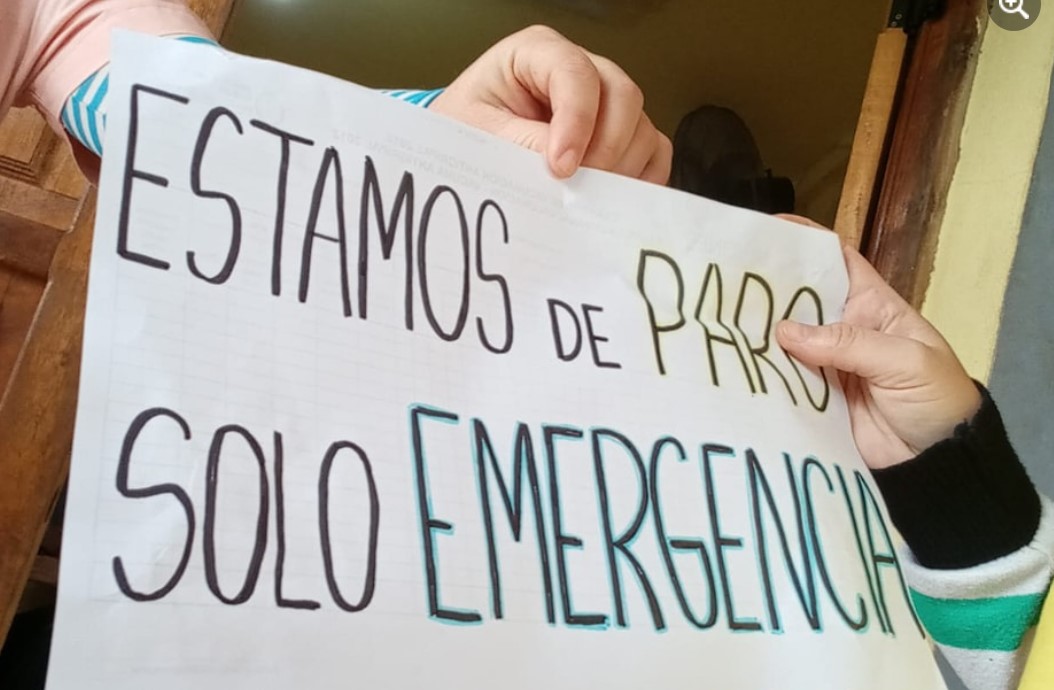 ESTAMOS DE PARO
SOLO EMERGENCIA